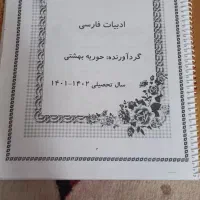 ادبیات فارسی
گردآورنده: حوریه بهشتی
سال تحصیلی ۱۴۰۲-۱۴۰۱